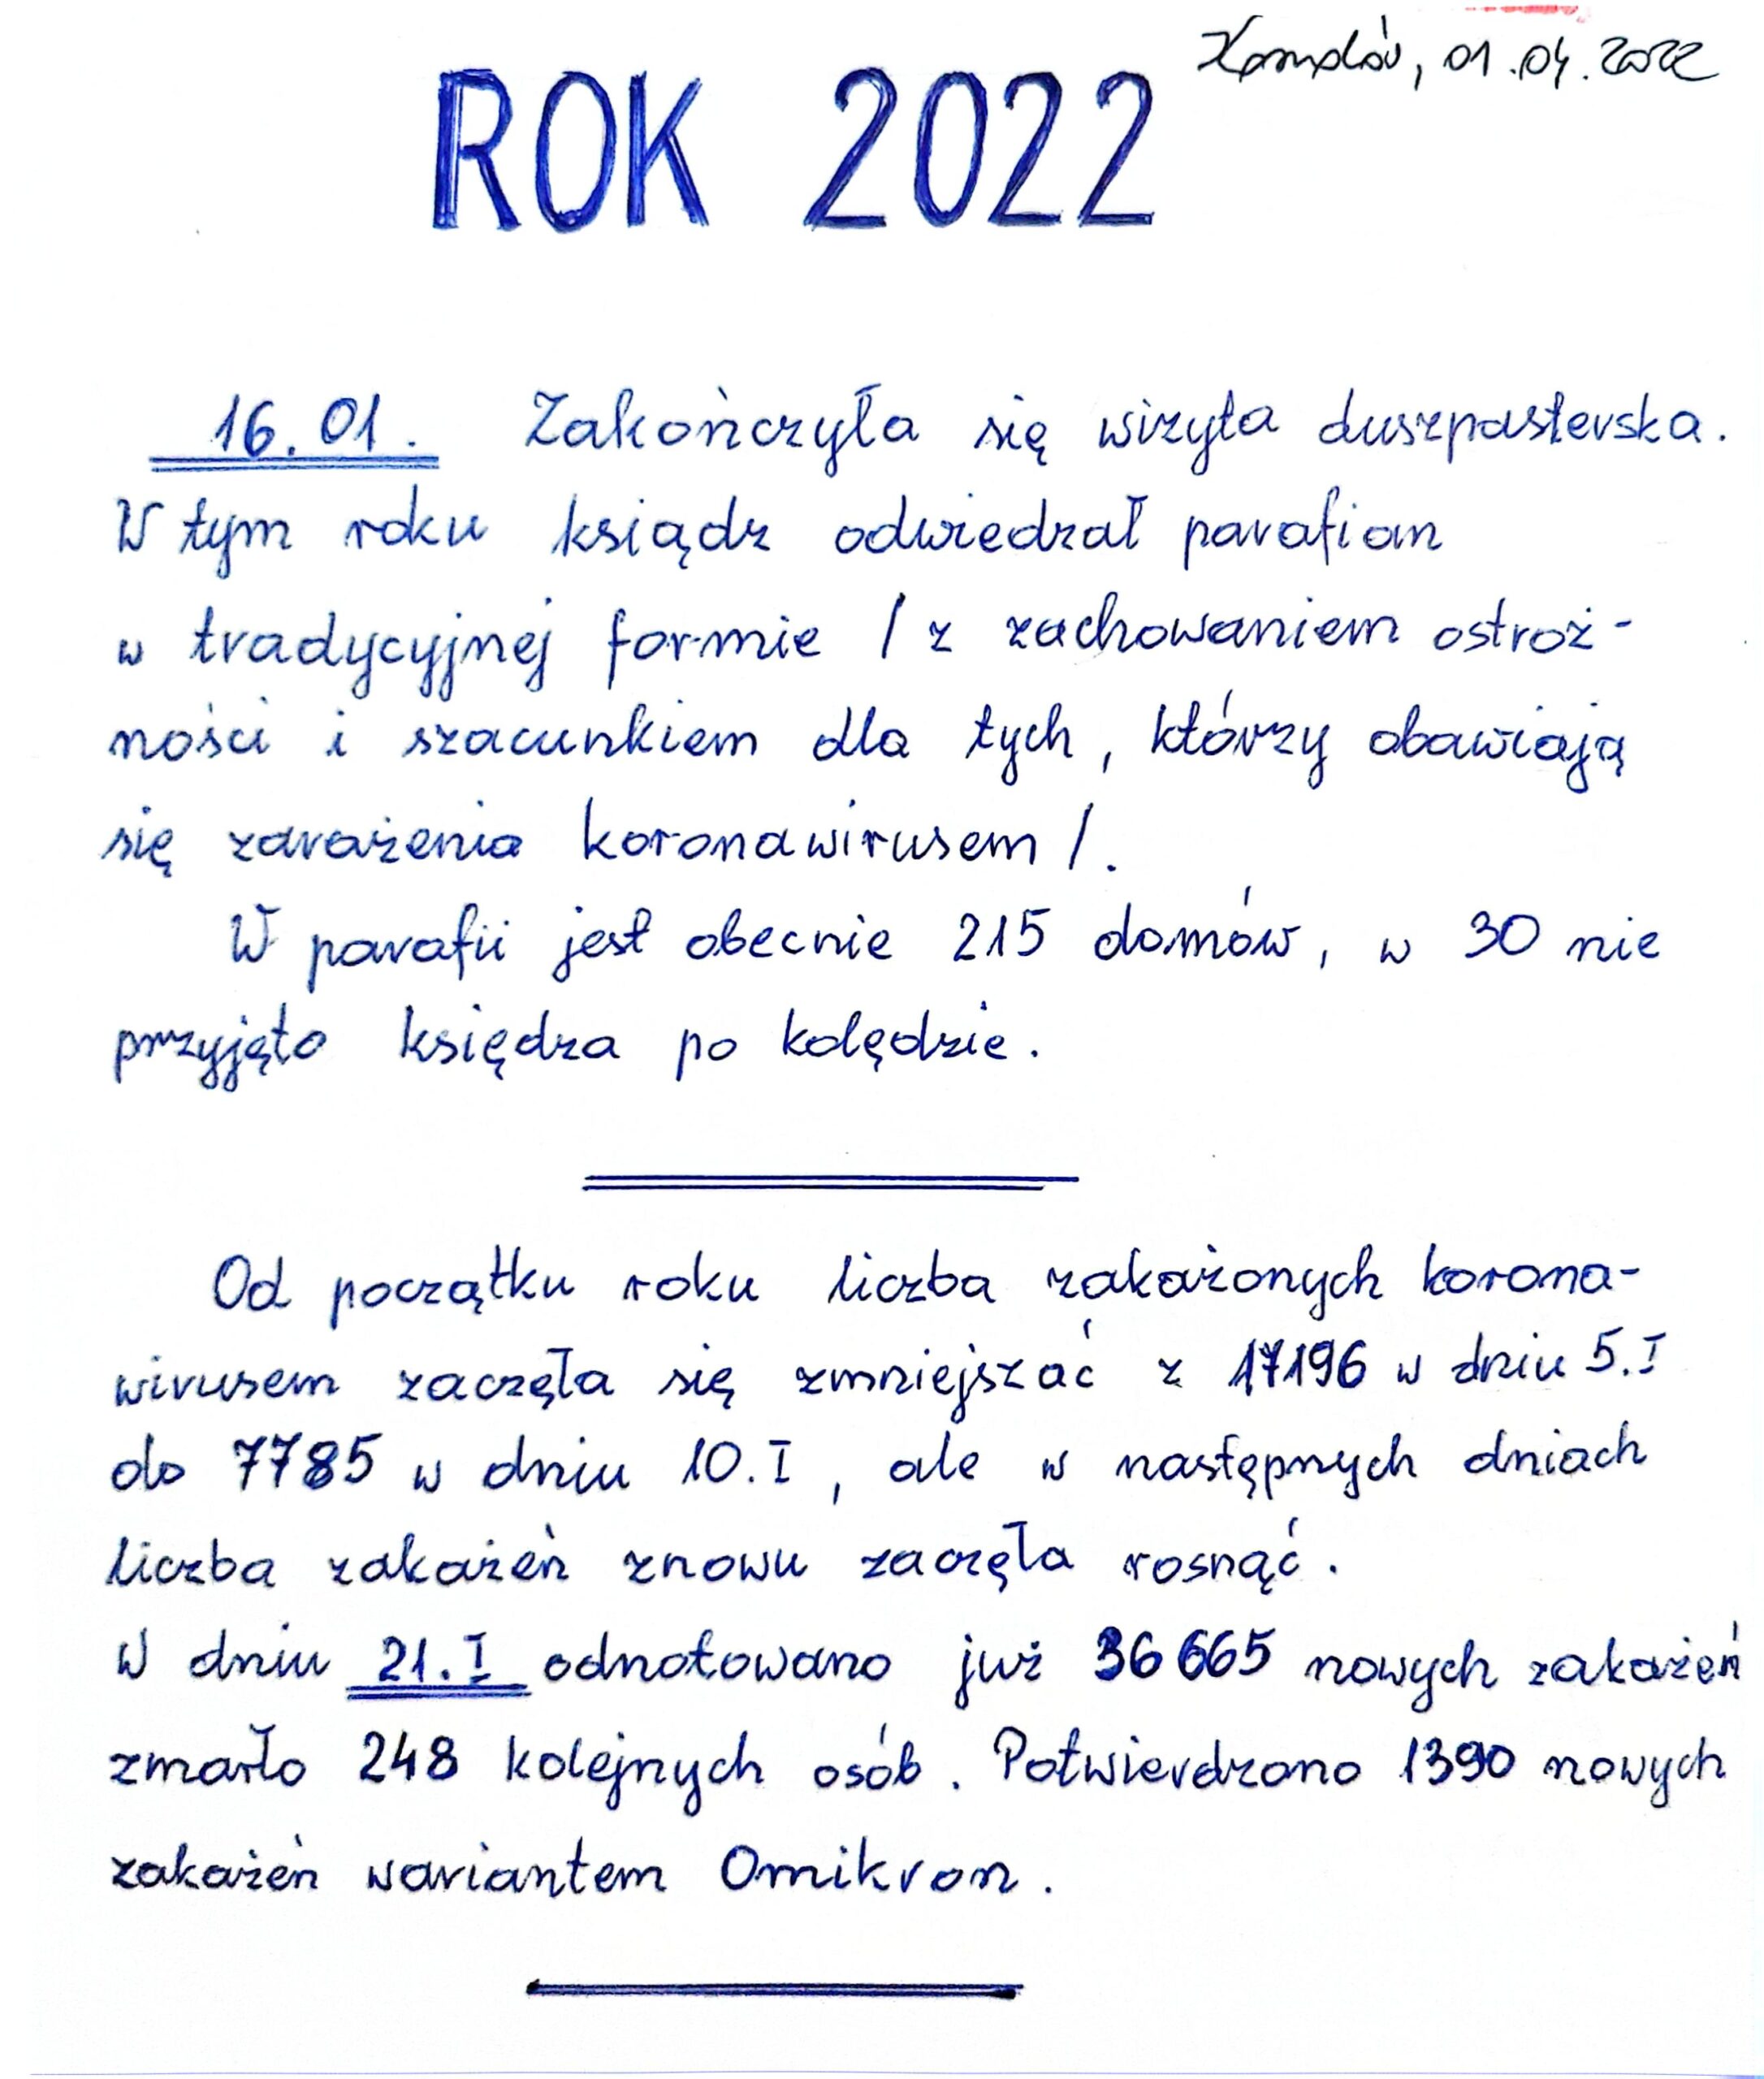 01.04.2022
ROK 2022
16.01. Zakończyła się wizyta duszpasterska.
W tym roku ksiądz odwiedzał parafian
w tradycyjnej formie / z zachowaniem ostroż-
ności i szacunkiem dla tych, którzy obawiają
się zarażenia koronawirusem /.
W parafii jest obecnie 215 domów, w 30 nie
przyjęto księdza po kolędzie.
Od początku roku liczba zakażonych korona-
wirusem zaczęła się zmniejszać z 17196 w dniu 5.I
do 7785 w dniu 10.I, ale w następnych dniach
liczba zakażeń znowu zaczęła rosnąć.
W dniu 21.I odnotowano już 36 665 nowych zakażeń
zmarło 248 kolejnych osób. Potwierdzono 1390 nowych
zakażeń wariantem Omikron.